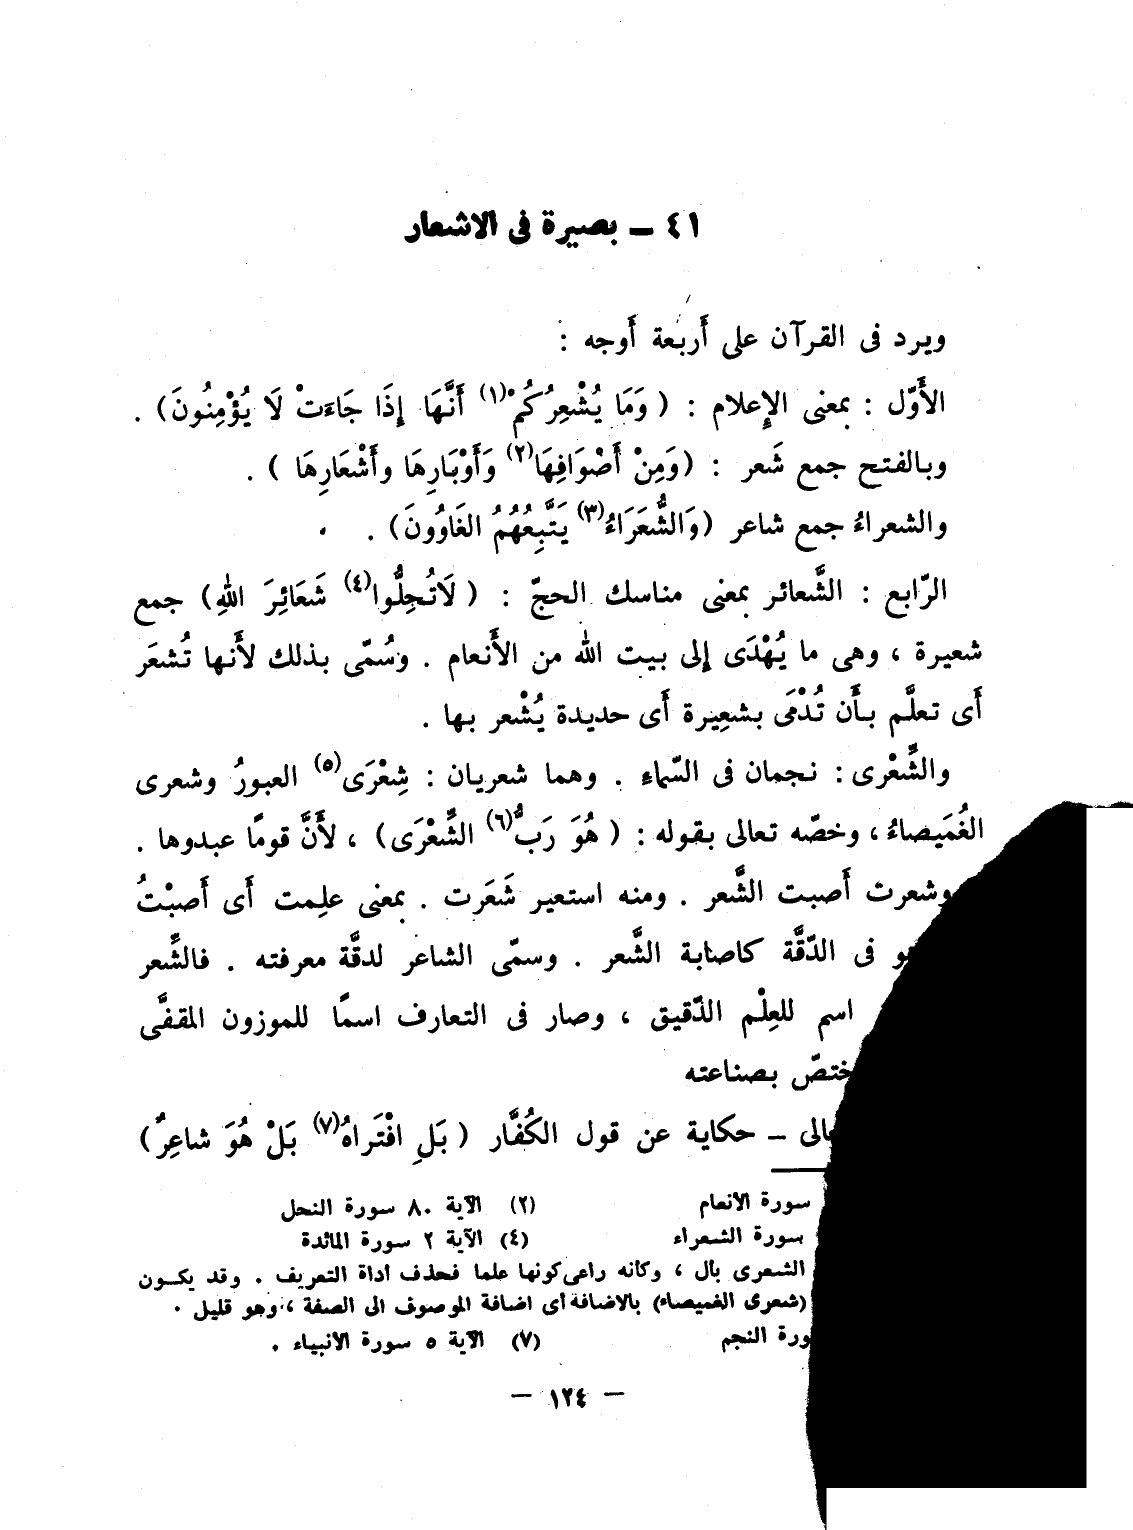 ٤١ ـ بصيرة فى الاشعار
ويرد فى القرآن على أَربعة أَوجه :
الأَوّل : بمعنى الإِعلام : ( وَمَا يُشْعِرُكُمْ(١) أَنَّهَا إِذَا جَاءَتْ لَا يُؤْمِنُونَ) .
وبالفتح جمع شَعر : (وَمِنْ أَصْوَافِهَا(٢) وَأَوْبَارِهَا وأَشْعَارِهَا ) .
والشعراءُ جمع شاعر (وَالشُّعَرَاءُ(٣) يَتَّبِعُهُمُ الغَاوُونَ) .
الرّابع : الشَّعائر بمعنى مناسك الحجّ : ( لَاتُحِلُّوا(٤) شَعَائِرَ اللهِ) جمع
شعيرة ، وهى ما يُهْدَى إِلى بيت الله من الأَنعام . وسُمّى بذلك لأَنها تُشعَر
أَى تعلَّم بأَن تُدْمَى بشعِيرة أَى حديدة يُشْعر بها .
والشِّعْرى : نجمان فى السّماءِ . وهما شعريان : شِعْرَى(٥) العبورُ وشعرى
الغُمَيصاءُ ، وخصّه تعالى بقوله : ( هُوَ رَبُّ(٦) الشِّعْرَى) ، لأَنَّ قومًا عبدوها .
وشعرت أَصبت الشَّعر . ومنه استعير شَعَرت . بمعنى علِمت أَى أَصبْتُ
فى الدّقَّة كاصابة الشَّعر . وسمّى الشاعر لدقَّة معرفته . فالشِّعر
اسم للعِلْم الدّقيق ، وصار فى التعارف اسمًا للموزون المقفَّى
بصناعته
ـ حكاية عن قول الكُفَّار ( بَلِ افْتَراهُ(٧) بَلْ هُوَ شاعِرٌ)
سورة الانعام (٢) الآية ٨٠ سورة النحل
سورة الشعراء (٤) الآية ٢ سورة المائدة
الشعرى بال ، وكانه راعى كونها علما فحذف أداة التعريف . وقد يكون
(شعرى الغميصاء) بالاضافة أى اضافة الموصوف الى الصفة ، وهو قليل .
النجم (٧) الآية ٥ سورة الأنبياء .
— ١٢٤ —